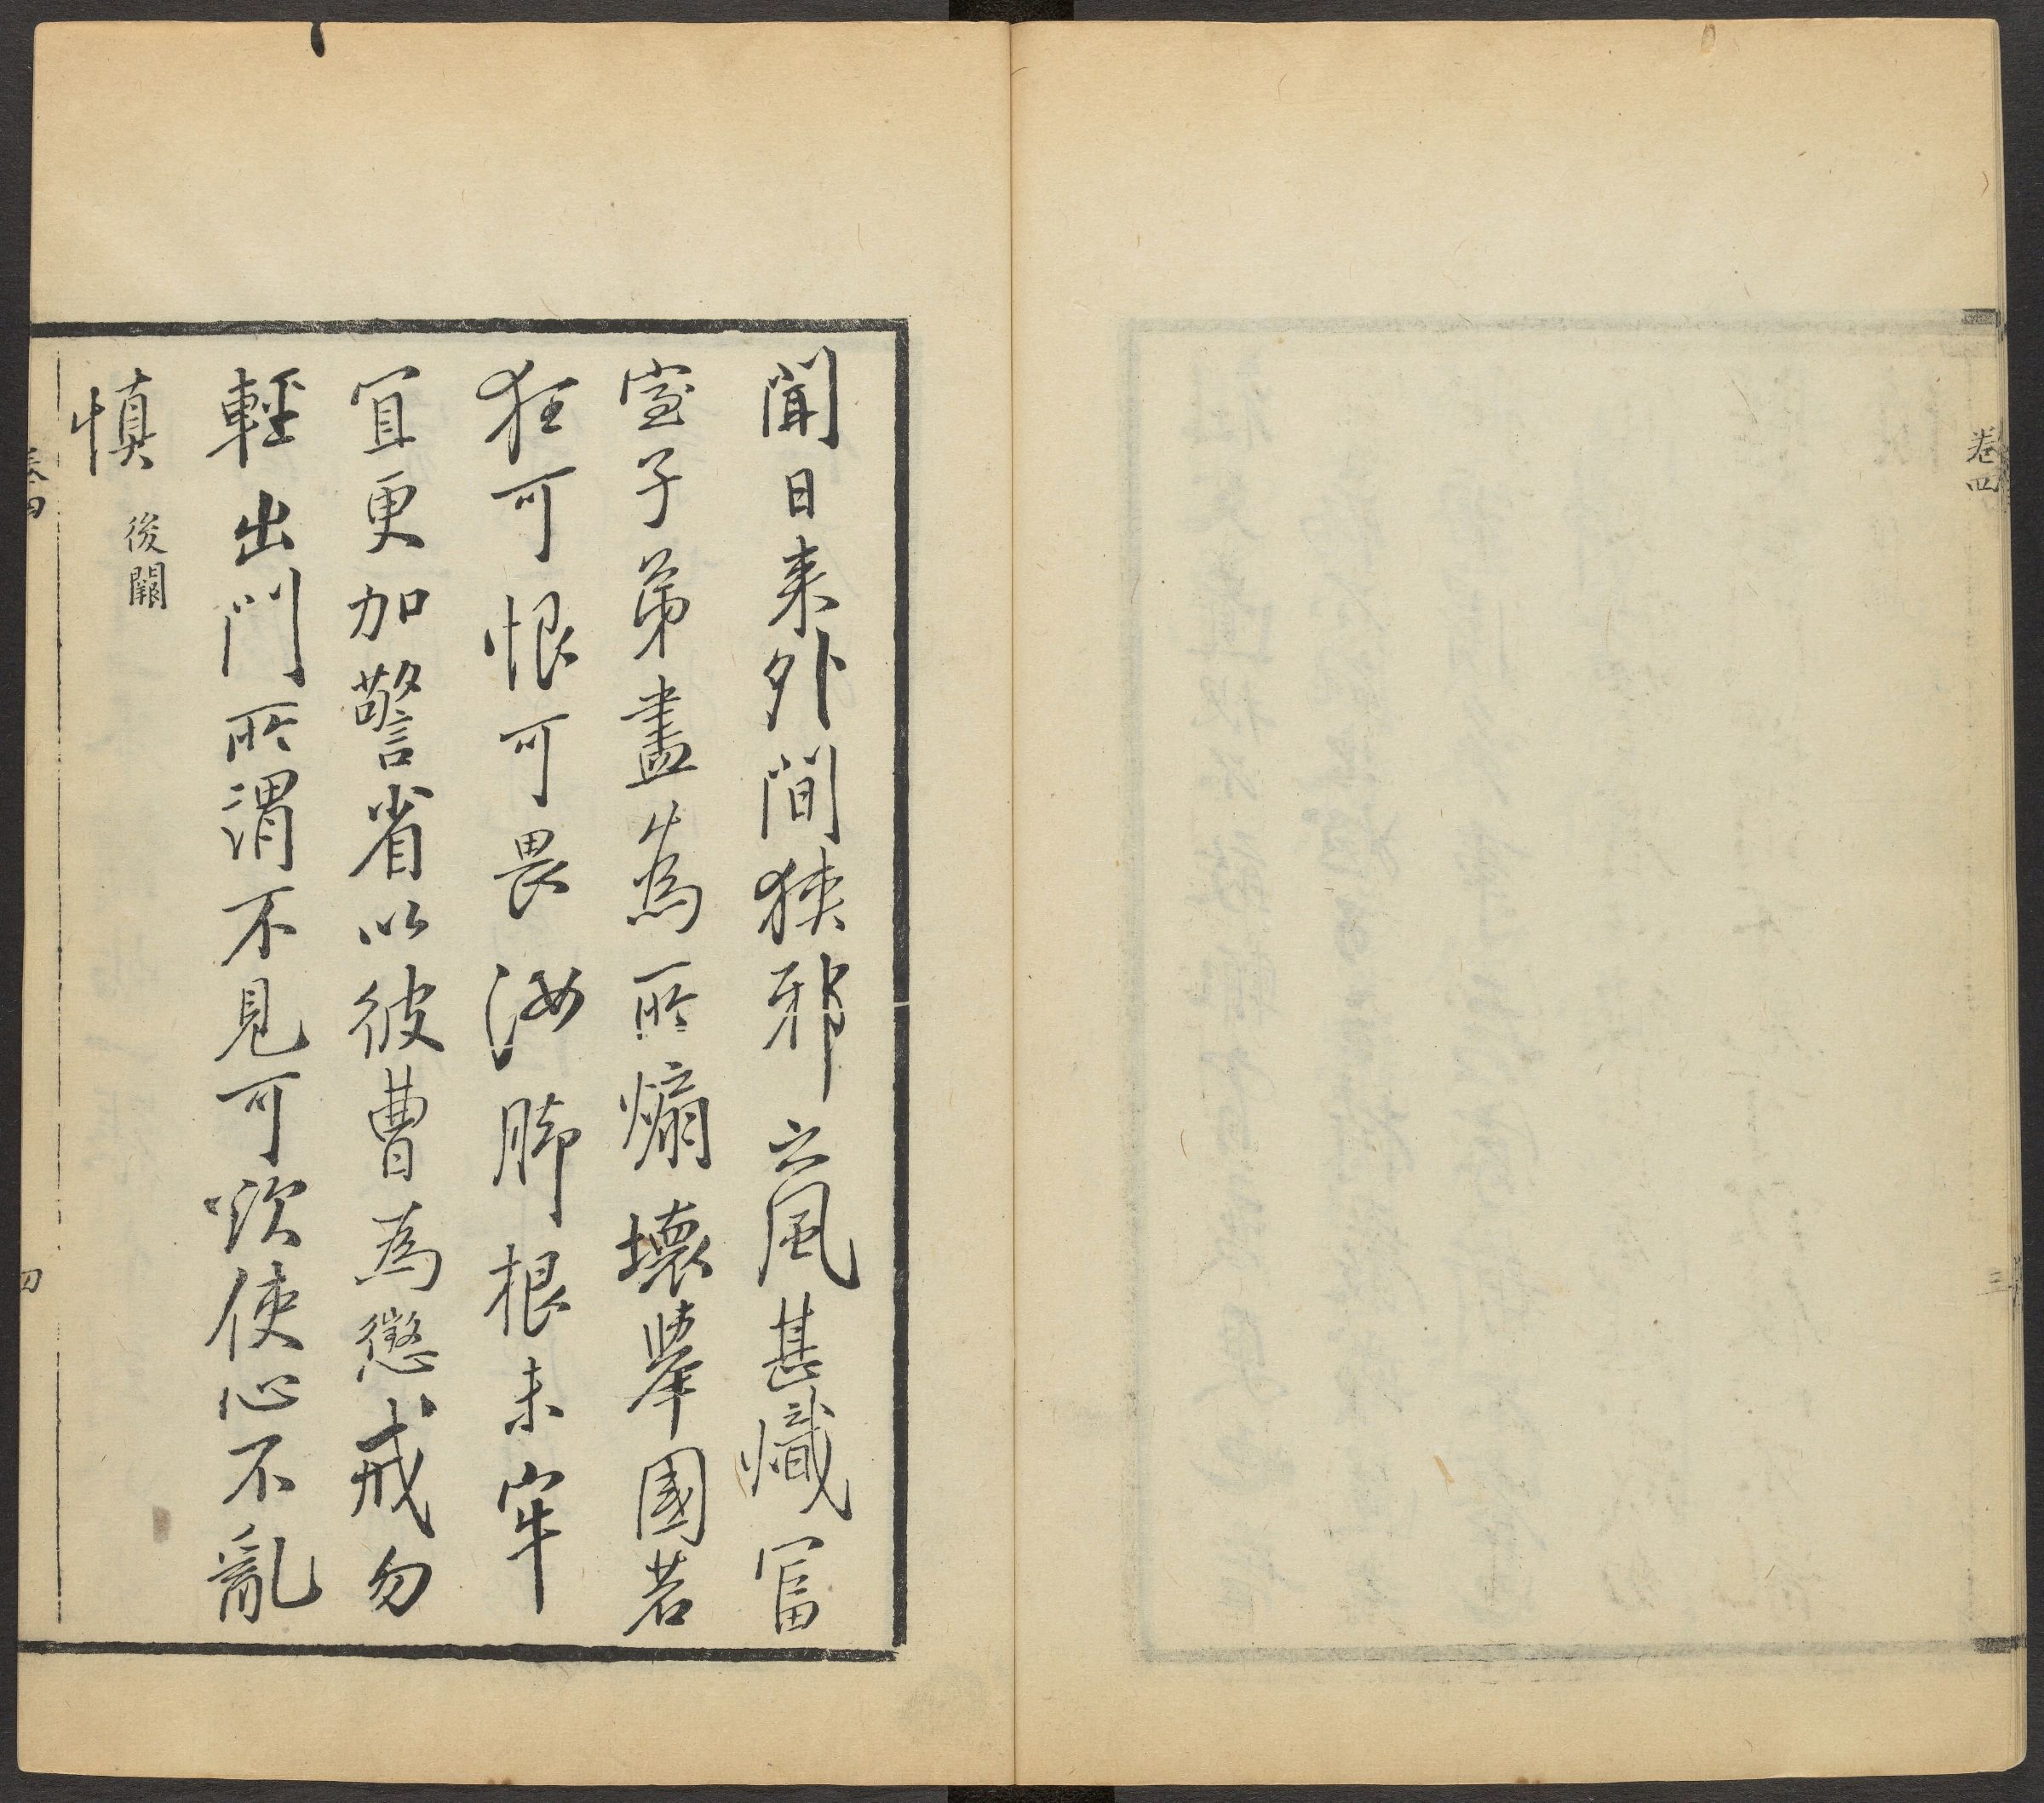 卷四
三
聞日来外間狹邪之風甚熾富
室子弟盡為所煽壞舉國若
狂可恨可畏汝脚根未牢
宜更加警省以彼曹為懲戒勿
輕出門所謂不見可欲使心不亂
慎
後闕
卷四
四